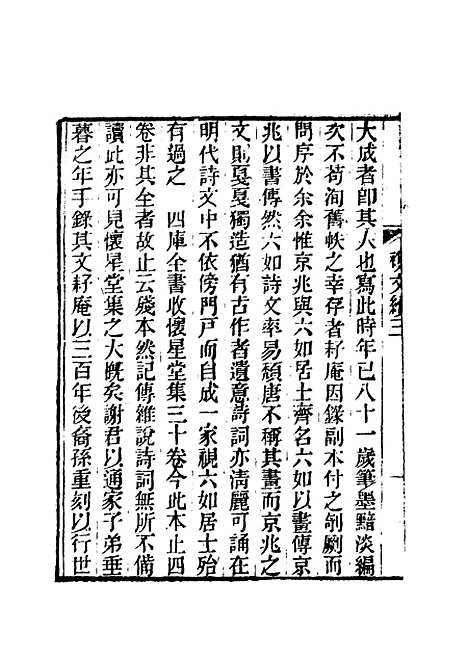 大成者卽其人也寫此時年已八十一歲筆墨黯淡編
次不苟洵舊帙之幸存者耔庵因錄副本付之剞劂而
問序於余余惟京兆與六如居士齊名六如以畫傳京
兆以書傳然六如詩文率易頹唐不稱其畫而京兆之
文則戛戛獨造猶有古作者遺意詩詞亦淸麗可誦在
明代詩文中不依傍門戸而自成一家視六如居士殆
有過之　四庫全書收懷星堂集三十卷今此本止四
卷非其全者故止云殘本然記傳雜說詩詞無所不備
讀此亦可見懷星堂集之大槪矣謝君以通家子弟垂
暮之年手錄其文耔庵以三百年後裔孫重刻以行世